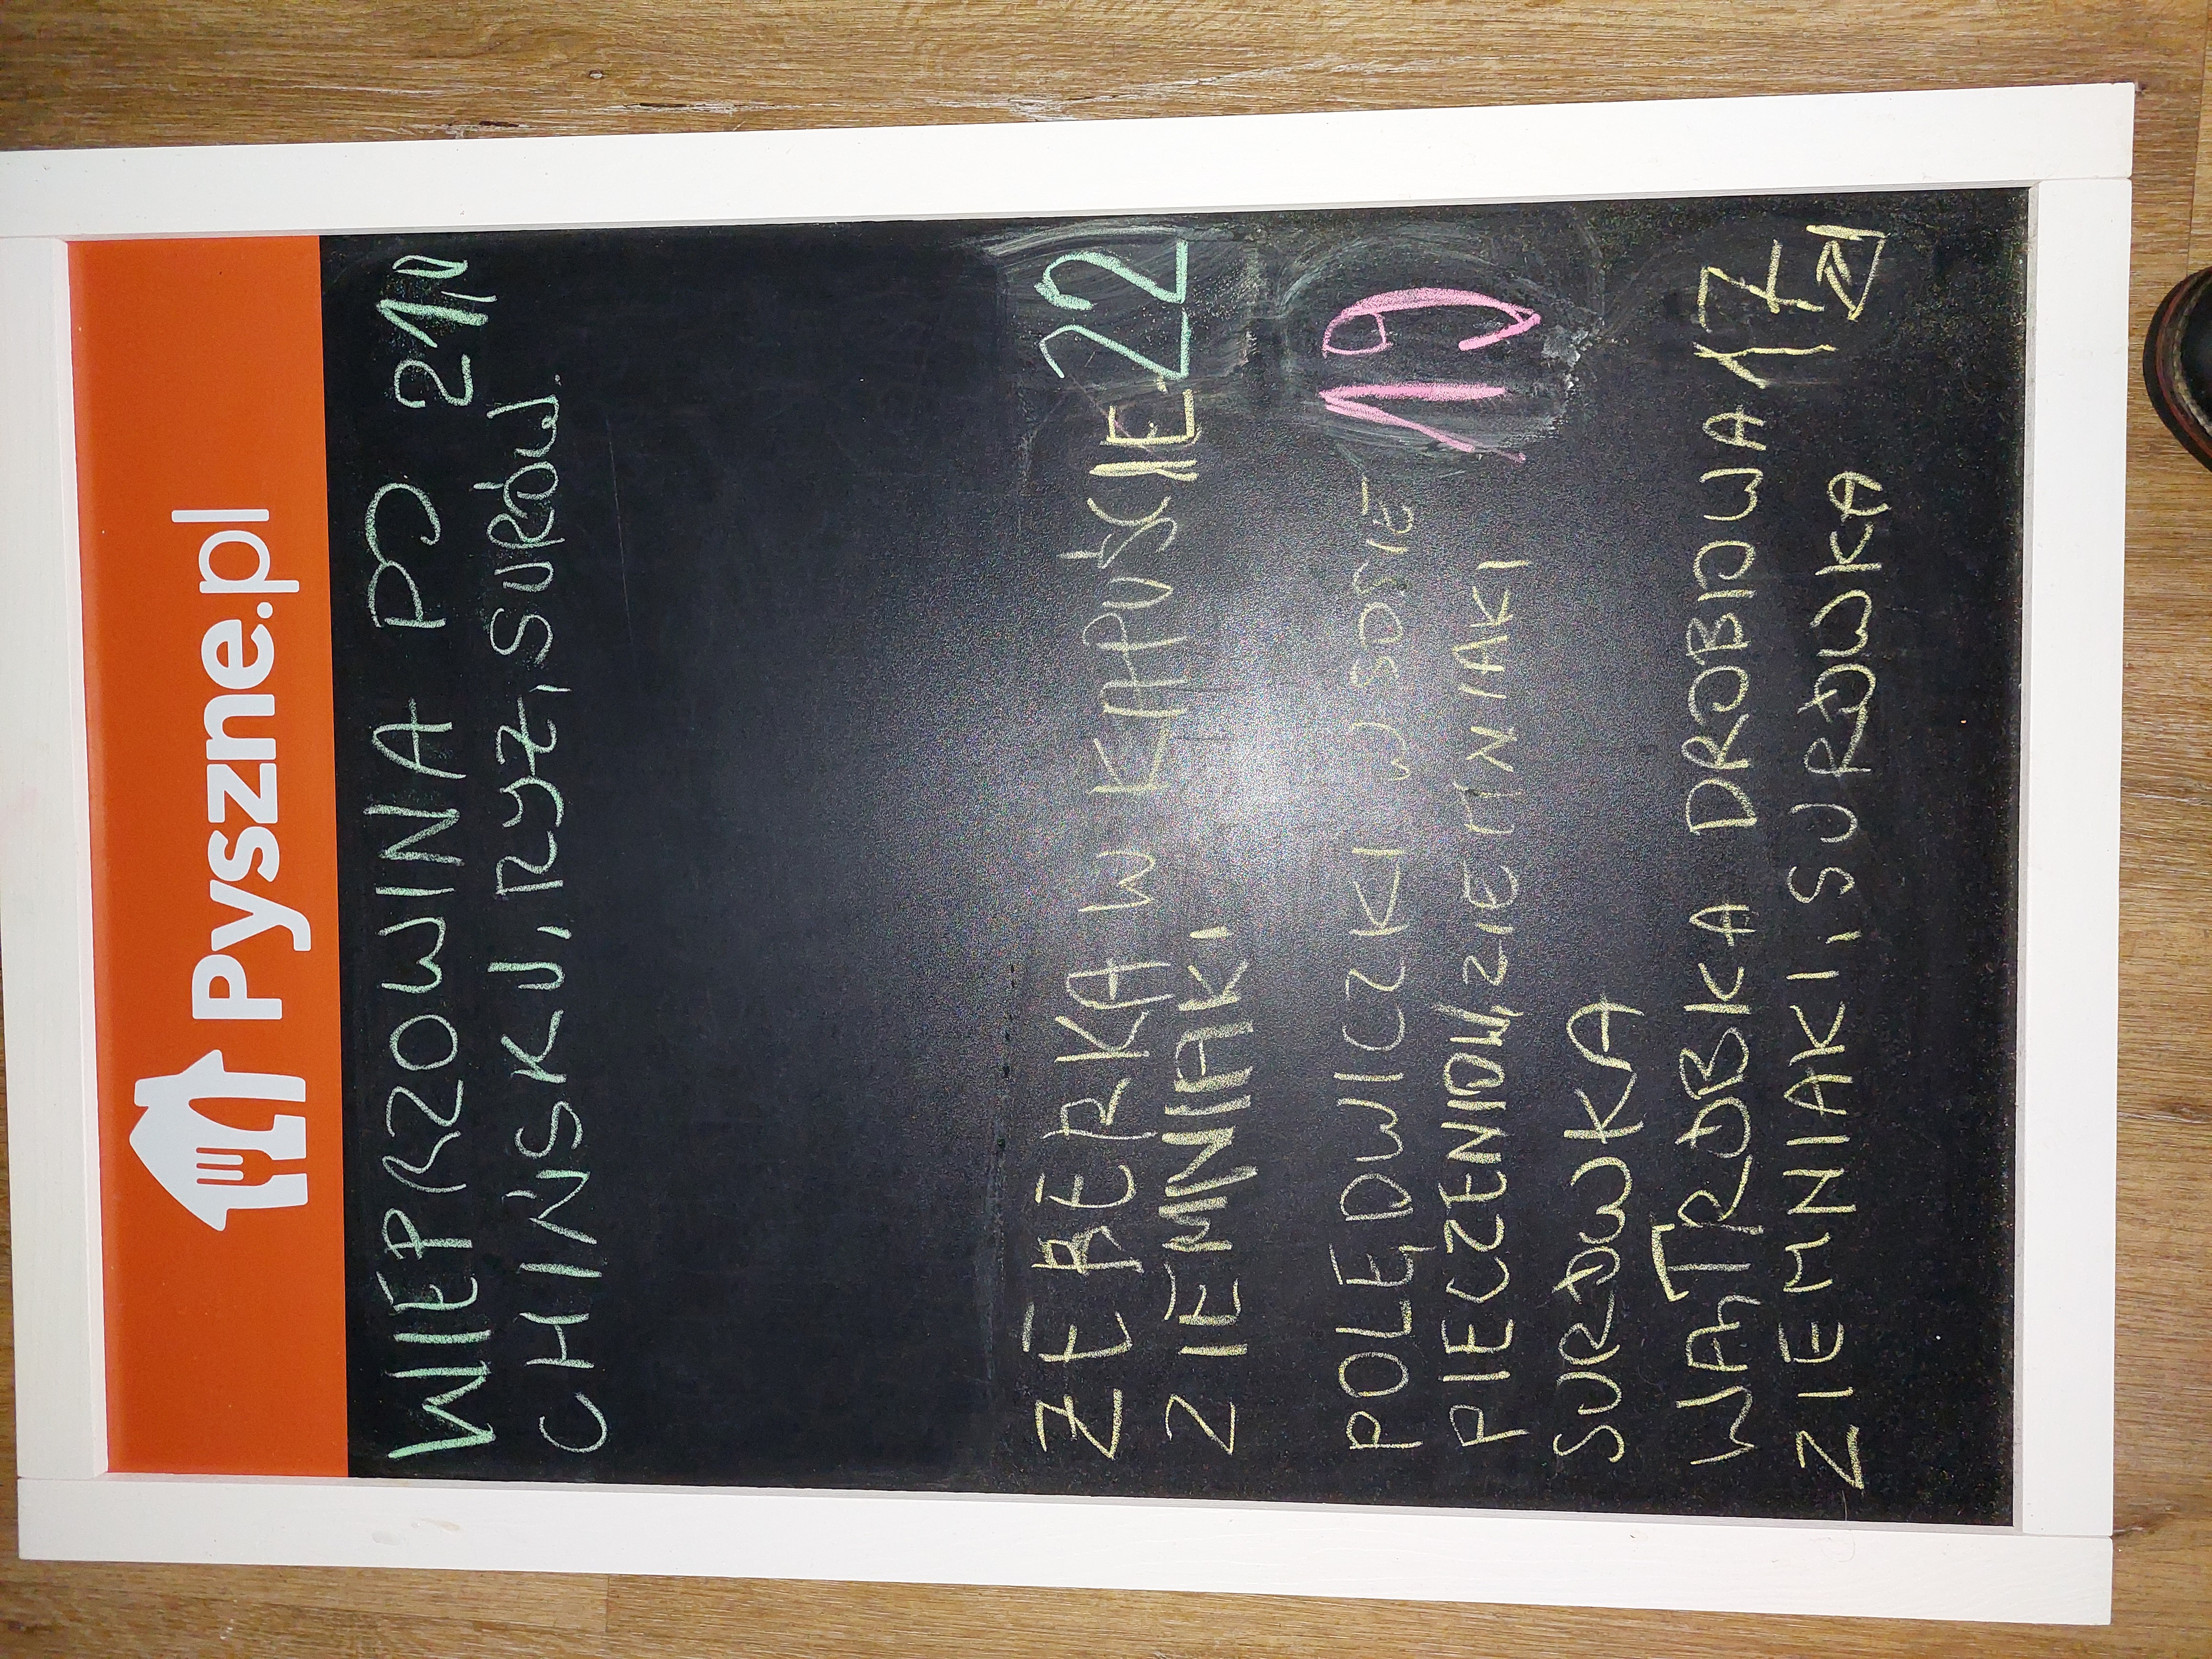 Pyszne.pl
WIEPRZOWINA PO 21
CHIŃSKU, RYŻ, SURÓW.
ŻEBERKA W KAPUŚCIE 22
ZIEMNIAKI
POLĘDWICZKI W SOSIE 19
PIECZENIOW, ZIEMNIAKI
SURÓWKA
WĄTRÓBKA DROBIOWA 17 zł
ZIEMNIAKI, SURÓWKA